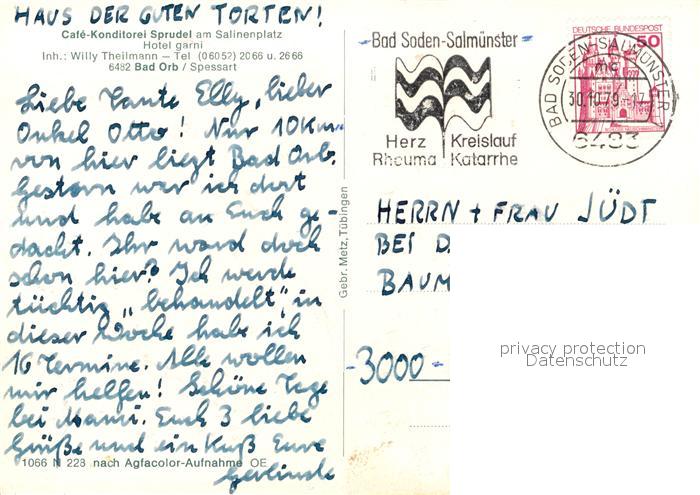 HAUS DER GUTEN TORTEN!
Café-Konditorei Sprudel am Salinenplatz
Hotel garni
Inh.: Willy Theilmann — Tel (06052) 2066 u. 2666
6482 Bad Orb / Spessart
Liebe Tante Elly, lieber
Onkel Otto! Nur 10 Km
von hier liegt Bad Orb.
Gestern war ich dort
und habe an Euch ge-
dacht. Ihr ward doch
schon hier? Ich werde
tüchtig „behandelt" in
dieser Woche habe ich
16 Termine. Alle wollen
mir helfen! Schöne Tage
bei Mami. Euch 3 liebe
Grüße und ein Kuß Eure
Gerlinde
1066 N 228 nach Agfacolor-Aufnahme OE
Gebr. Metz, Tübingen
Bad Soden-Salmünster
Herz Kreislauf
Rheuma Katarrhe
DEUTSCHE BUNDESPOST
50
BAD SODEN-SALMÜNSTER
mc
30.10.79-17
6483
HERRN + FRAU JÜDT
BEI D
BAUM
-3000-
privacy protection
Datenschutz